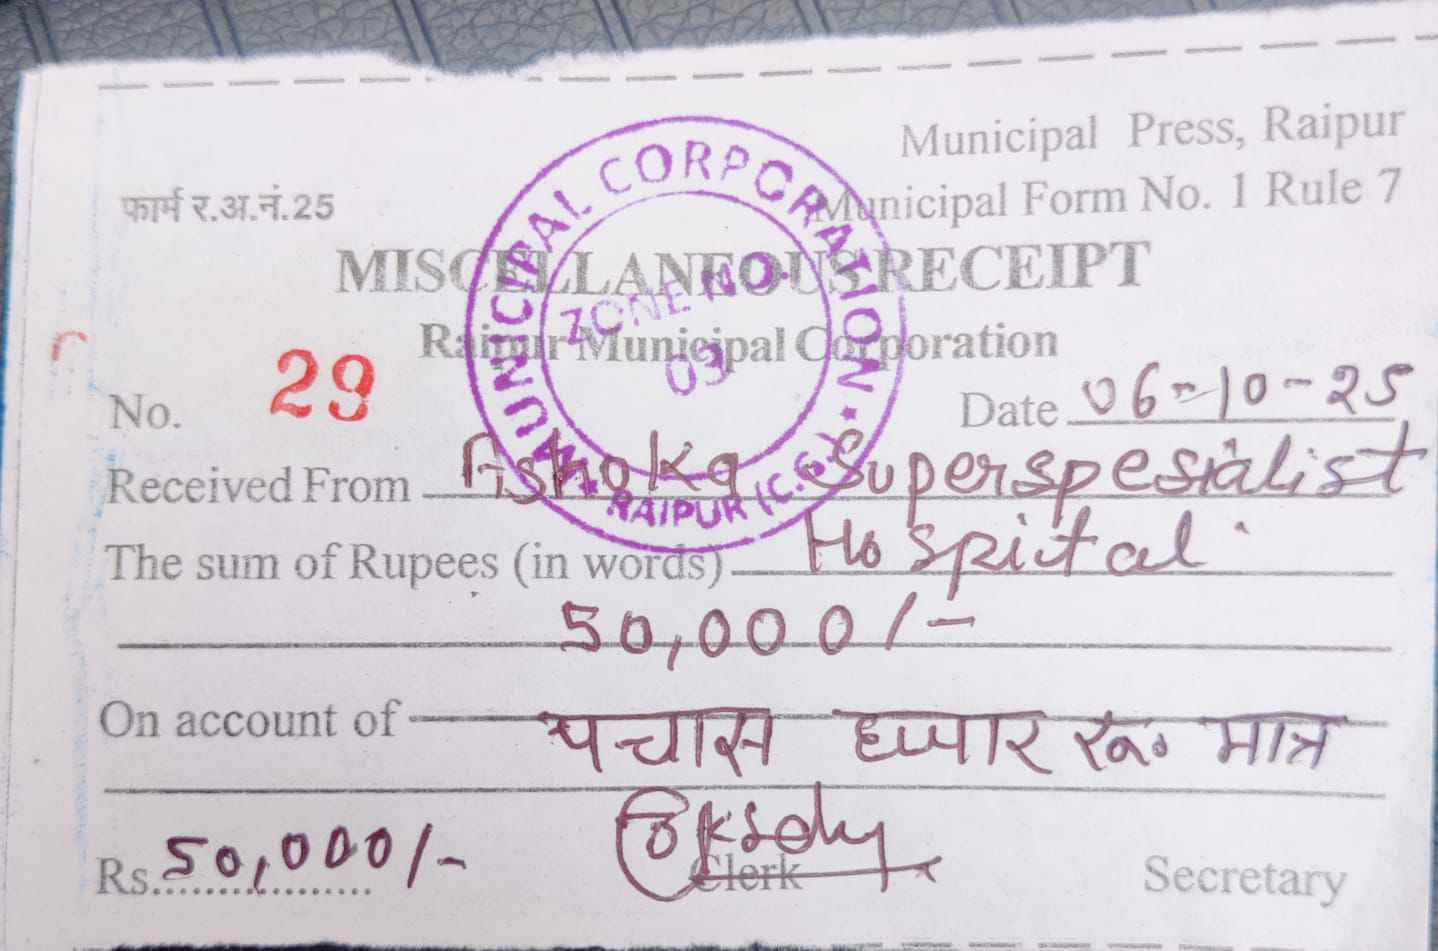 Municipal Press, Raipur
फार्म र.अ.नं.25
Municipal Form No. 1 Rule 7
MISCELLANEOUS RECEIPT
Raipur Municipal Corporation
MUNICIPAL CORPORATION * RAIPUR (C.G.) *
ZONE NO.
09
No. 29
Date 06-10-25
Received From Ashoka Superspesialist
The sum of Rupees (in words) Hospital
50,000/-
On account of पचास हजार रू. मात्र
Rs. 50,000/-
Clerk
Secretary